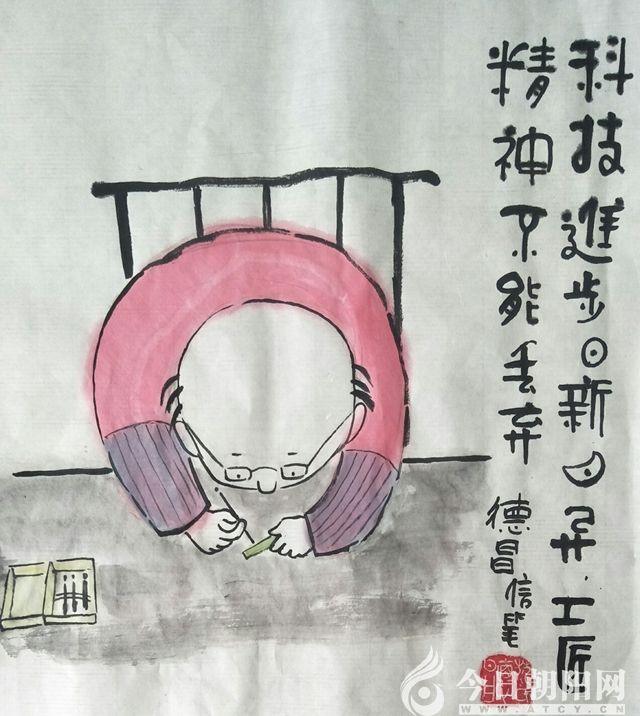 科技進步日新月异·工匠
精神不能丢弃
德昌信笔
今日朝阳网
WWW.ATCY.CN